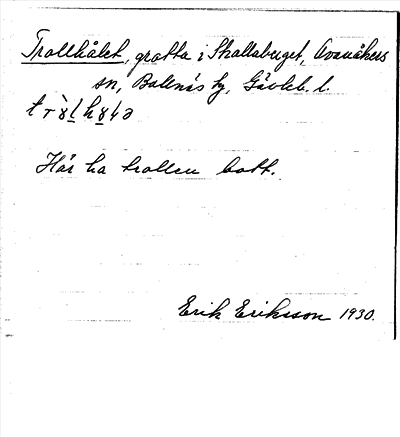 Trollhålet, grotta i Skallaberget, Ovanåkers
sn, Bollnäs tg, Gävleb. l.
Här ha trollen bott.
Erik Eriksson 1930.